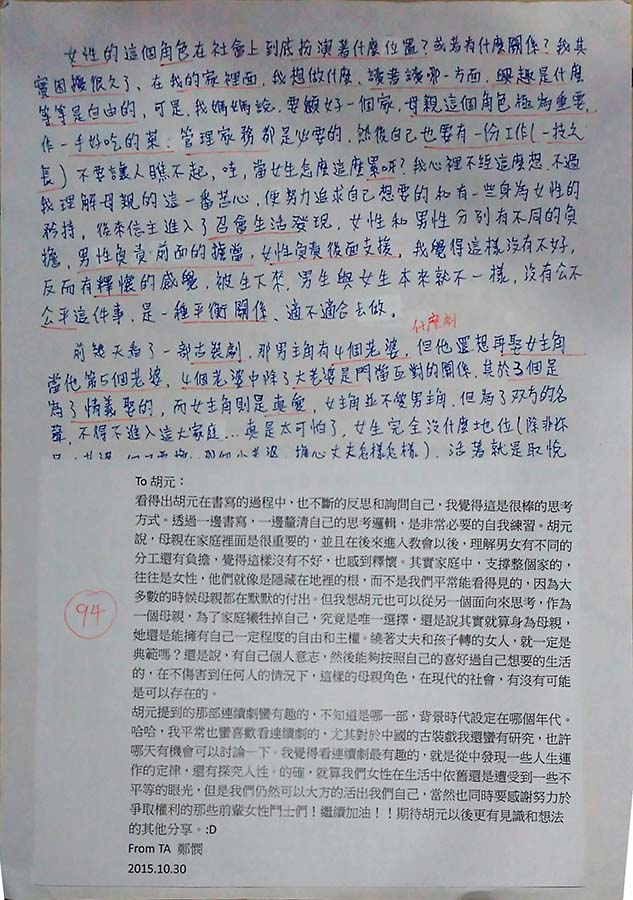 女性的這個角色在社會上到底扮演著什麼位置？或若有什麼關係？我其
實困擾很久了，在我的家裡面，我想做什麼、讀書讀哪一方面、興趣是什麼
等等是自由的，可是，我媽媽說，要顧好一個家，母親這個角色極為重要，
作一手好吃的菜、管理家務都是必要的，然後自己也要有一份工作(一技之
長)不要讓人瞧不起，哇，當女生怎麼這麼累呀？我心裡不經這麼想，不過
我理解母親的這一番苦心，便努力追求自己想要的和有一些身為女性的
矜持，後來信主進入了召會生活發現，女性和男性分別有不同的負
擔，男性負責前面的擔當，女性負責後面支援，我覺得這樣沒有不好，
反而有釋懷的感覺，被生下來，男生與女生本來就不一樣，沒有公不
公平這件事，是一種平衡關係、適不適合去做。
什麼劇
前幾天看了一部古裝劇，那男主角有4個老婆，但他還想再娶女主角
當他第5個老婆，4個老婆中除了大老婆是門當互對的關係，其於3個是
為了情義娶的，而女主角則是真愛，女主角並不愛男主角，但為了双方的名
譽，不得不進入這大家庭...真是太可怕了，女生完全沒什麼地位(除非你
擔心丈夫怎樣怎樣)，活著就是取悅
To 胡元：
看得出胡元在書寫的過程中，也不斷的反思和詢問自己，我覺得這是很棒的思考
方式。透過一邊書寫，一邊釐清自己的思考邏輯，是非常必要的自我練習。胡元
說，母親在家庭裡面是很重要的，並且在後來進入教會以後，理解男女有不同的
分工還有負擔，覺得這樣沒有不好，也感到釋懷。其實家庭中，支撐整個家的，
往往是女性，他們就像是隱藏在地裡的根，而不是我們平常能看得見的，因為大
多數的時候母親都在默默的付出。但我想胡元也可以從另一個面向來思考，作為
一個母親，為了家庭犧牲掉自己，究竟是唯一選擇，還是說其實就算身為母親，
她還是能擁有自己一定程度的自由和主權。繞著丈夫和孩子轉的女人，就一定是
典範嗎？還是說，有自己個人意志，然後能夠按照自己的喜好過自己想要的生活
的，在不傷害到任何人的情況下，這樣的母親角色，在現代的社會，有沒有可能
是可以存在的。
94
胡元提到的那部連續劇蠻有趣的，不知道是哪一部，背景時代設定在哪個年代。
哈哈，我平常也蠻喜歡看連續劇的，尤其對於中國的古裝戲我還蠻有研究，也許
哪天有機會可以討論一下。我覺得看連續劇最有趣的，就是從中發現一些人生運
作的定律，還有探究人性。的確，就算我們女性在生活中依舊還是遭受到一些不
平等的眼光，但是我們仍然可以大方的活出我們自己，當然也同時要感謝努力於
爭取權利的那些前輩女性鬥士們！繼續加油！！期待胡元以後更有見識和想法
的其他分享。:D
From TA 鄭憫
2015.10.30